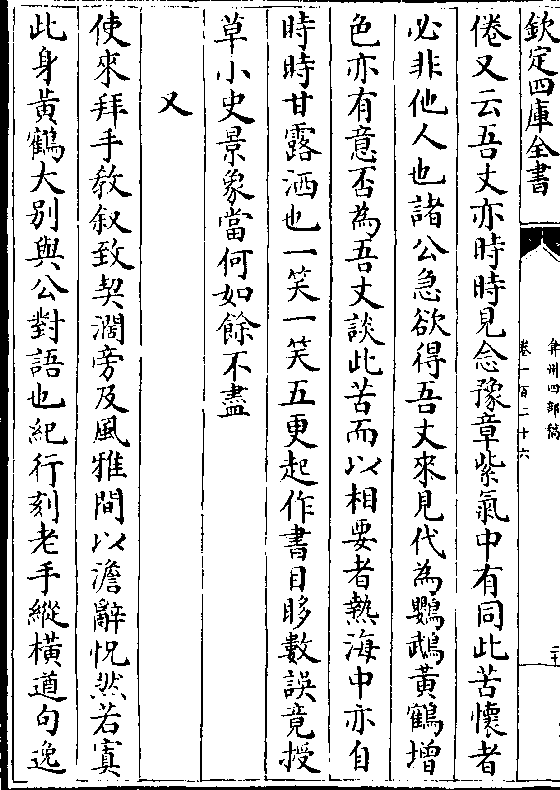 欽定四庫全書
弇州四部稿
卷一百二十六
二十
倦又云吾丈亦時時見念豫章紫氣中有同此苦懷者
必非他人也諸公急欲得吾丈來見代為鸚鵡黃鶴增
色亦有意否為吾丈談此苦而以相要者熱海中亦自
時時甘露洒也一笑一笑五更起作書目眵數誤竟授
草小史景象當何如餘不盡
又
使來拜手教叙致契濶旁及風雅間以澹辭怳然若寘
此身黃鶴大别與公對語也紀行刻老手縱橫遒句逸